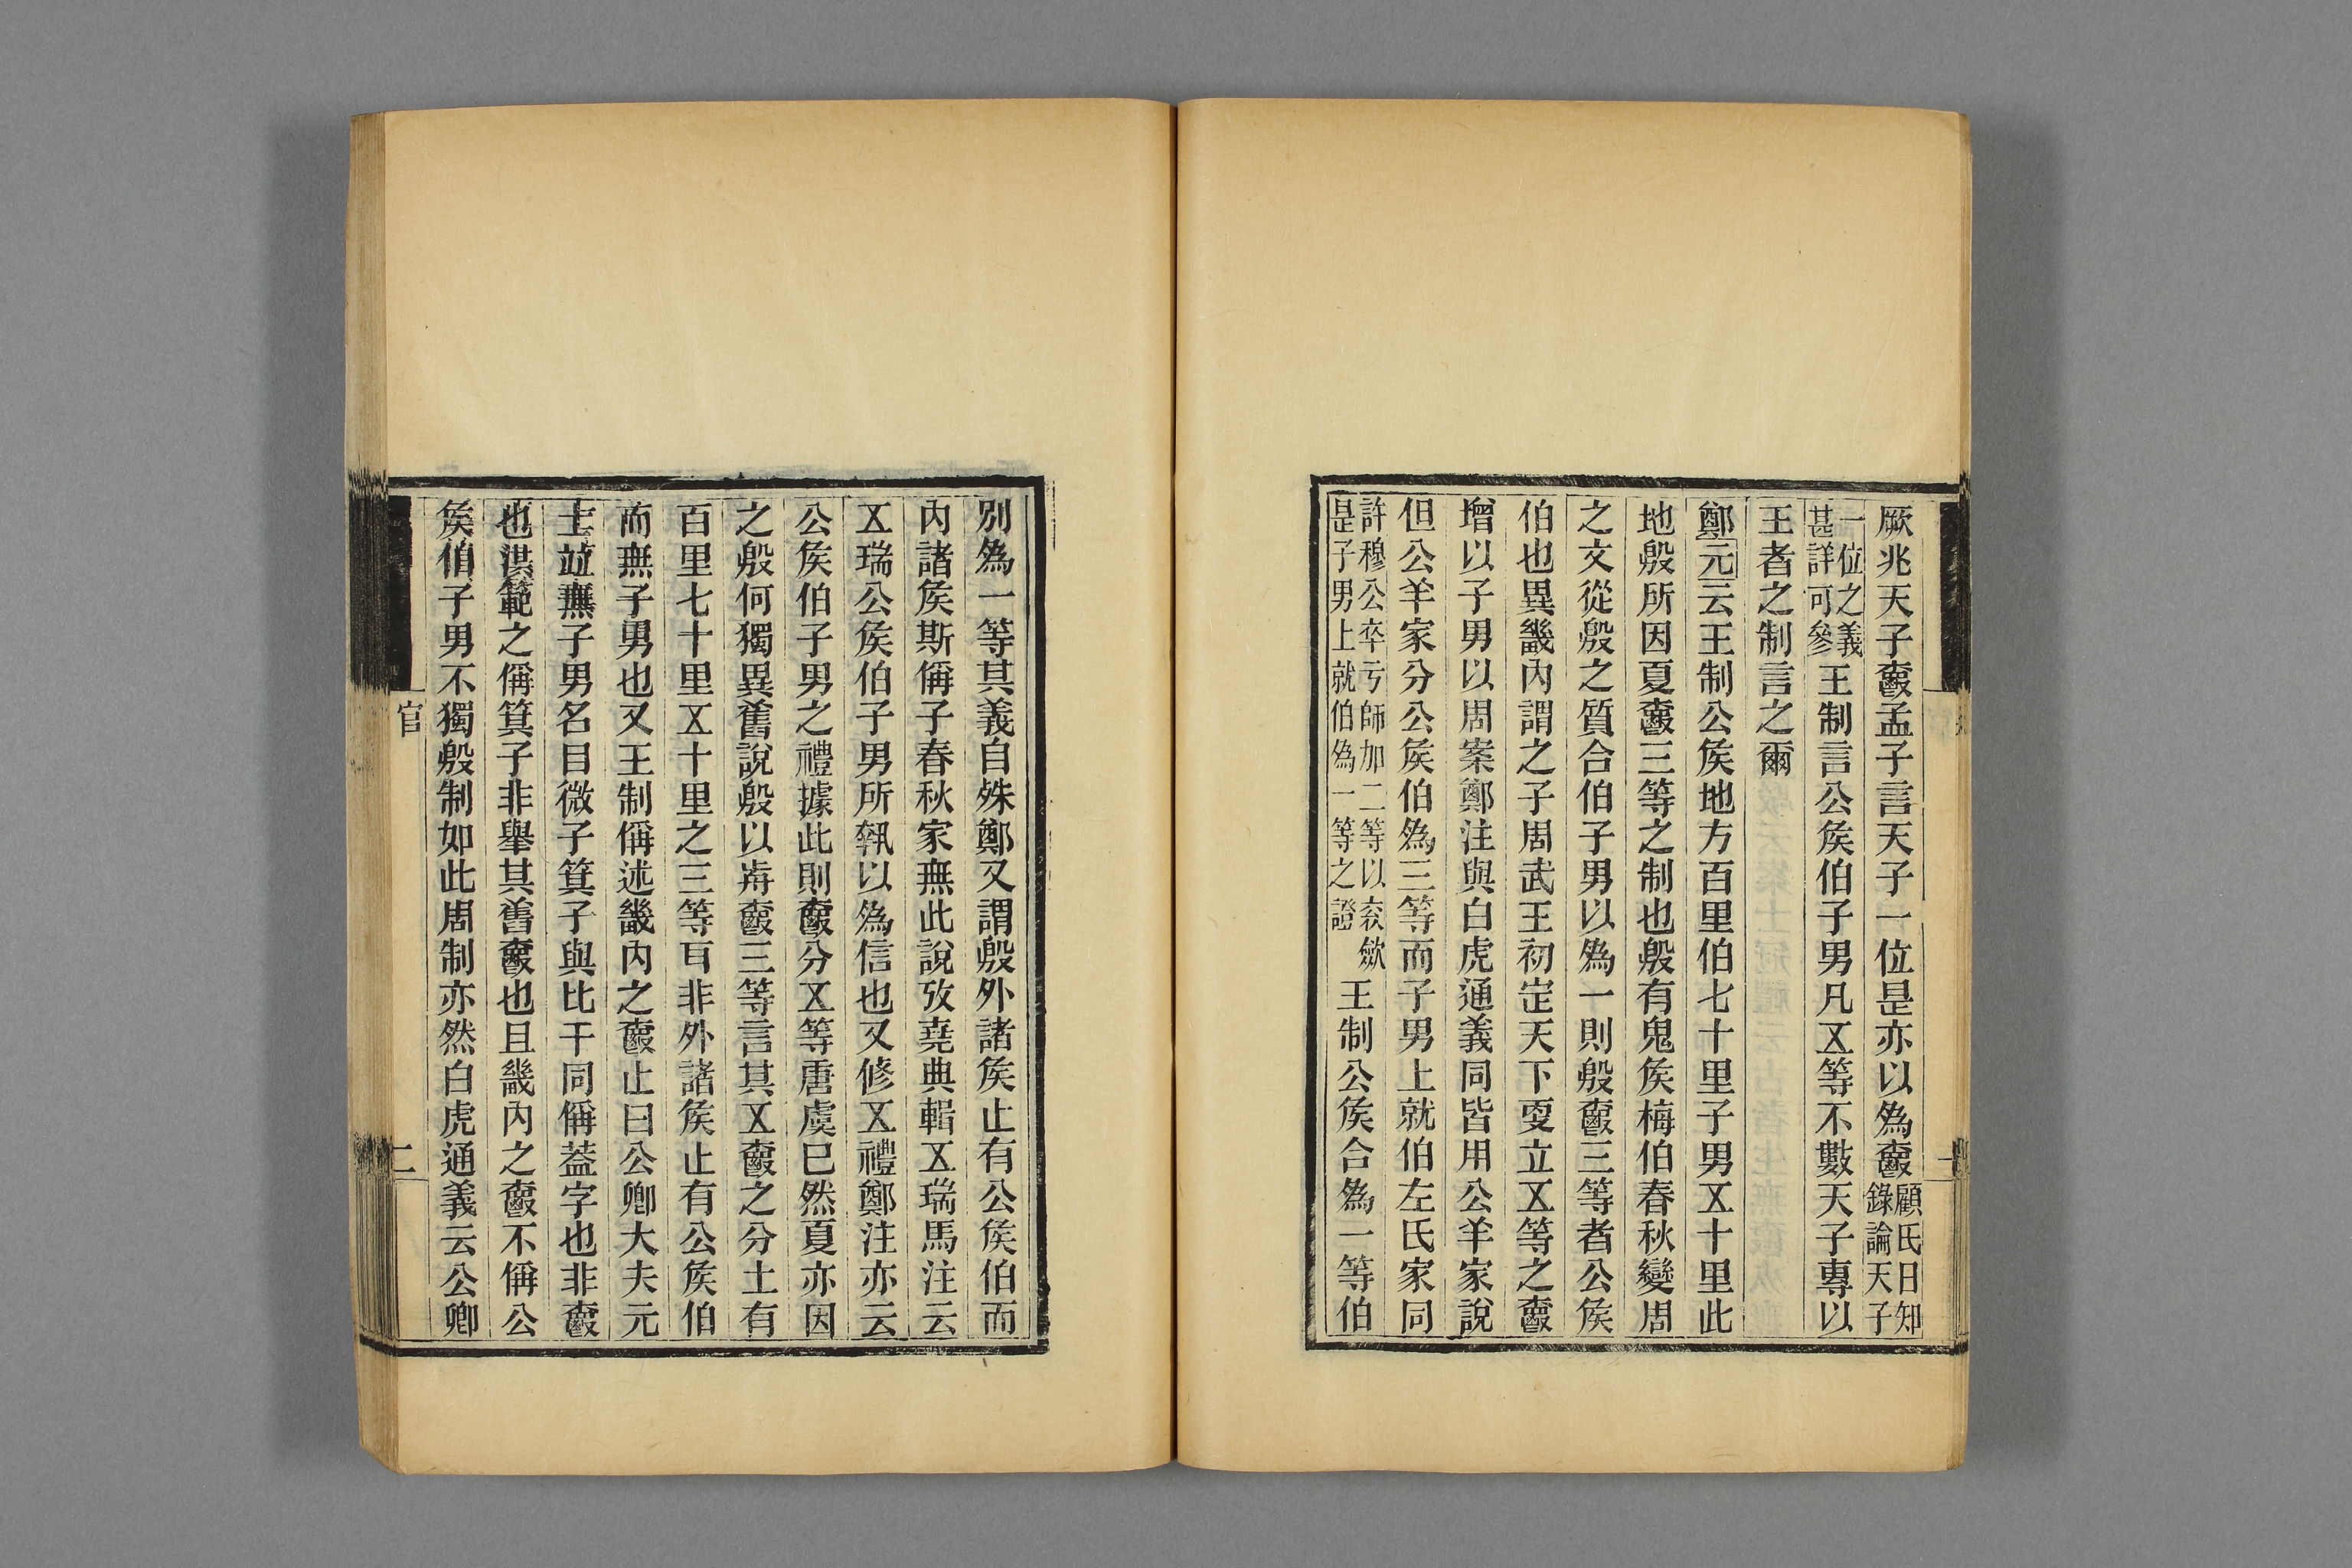 厥兆天子𤔲孟子言天子一位是亦以爲𤔲顧氏日知錄論天子
一位之義甚詳可參王制言公矦伯子男凡㐅等不數天子專以
王者之制言之爾
鄭元云王制公矦地方百里伯七十里子男㐅十里此
地殷所因夏爵三等之制也殷有鬼矦梅伯春秋變周
之文從殷之質合伯子男以爲一則殷爵三等者公矦
伯也異畿內謂之子周武王初定天下更立㐅等之爵
增以子男以周案鄭注與白虎通義同皆用公羊家說
但公羊家分公矦伯爲三等而子男上就伯左氏家同
許穆公卒亏師加二等以衮斂是子男上就伯爲一等之證王制公矦合爲一等伯
別爲一等其義自殊鄭又謂殷外諸矦止有公矦伯而
內諸矦斯偁子春秋家無此說攷堯典輯㐅瑞馬注云
㐅瑞公矦伯子男所執以爲信也又修㐅禮鄭注亦云
公矦伯子男之禮據此則爵分㐅等唐虞已然夏亦因
之殷何獨異舊說殷以歬爵三等言其㐅爵之分土有
百里七十里㐅十里之三等耳非外諸矦止有公矦伯
而無子男也又王制偁述畿內之爵止曰公卿大夫元
士竝無子男名目微子箕子與比干同偁葢字也非爵
也洪範之偁箕子非舉其舊爵也且畿內之爵不偁公
矦伯子男不獨殷制如此周制亦然白虎通義云公卿
官
二